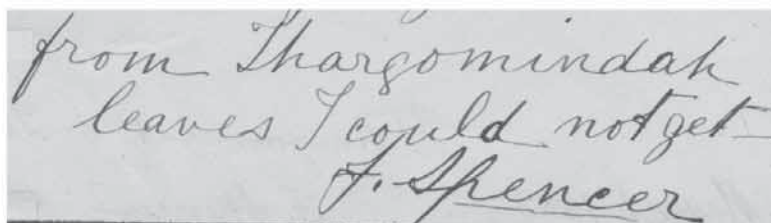 from Thargomindah
leaves I could not get
F. Spencer